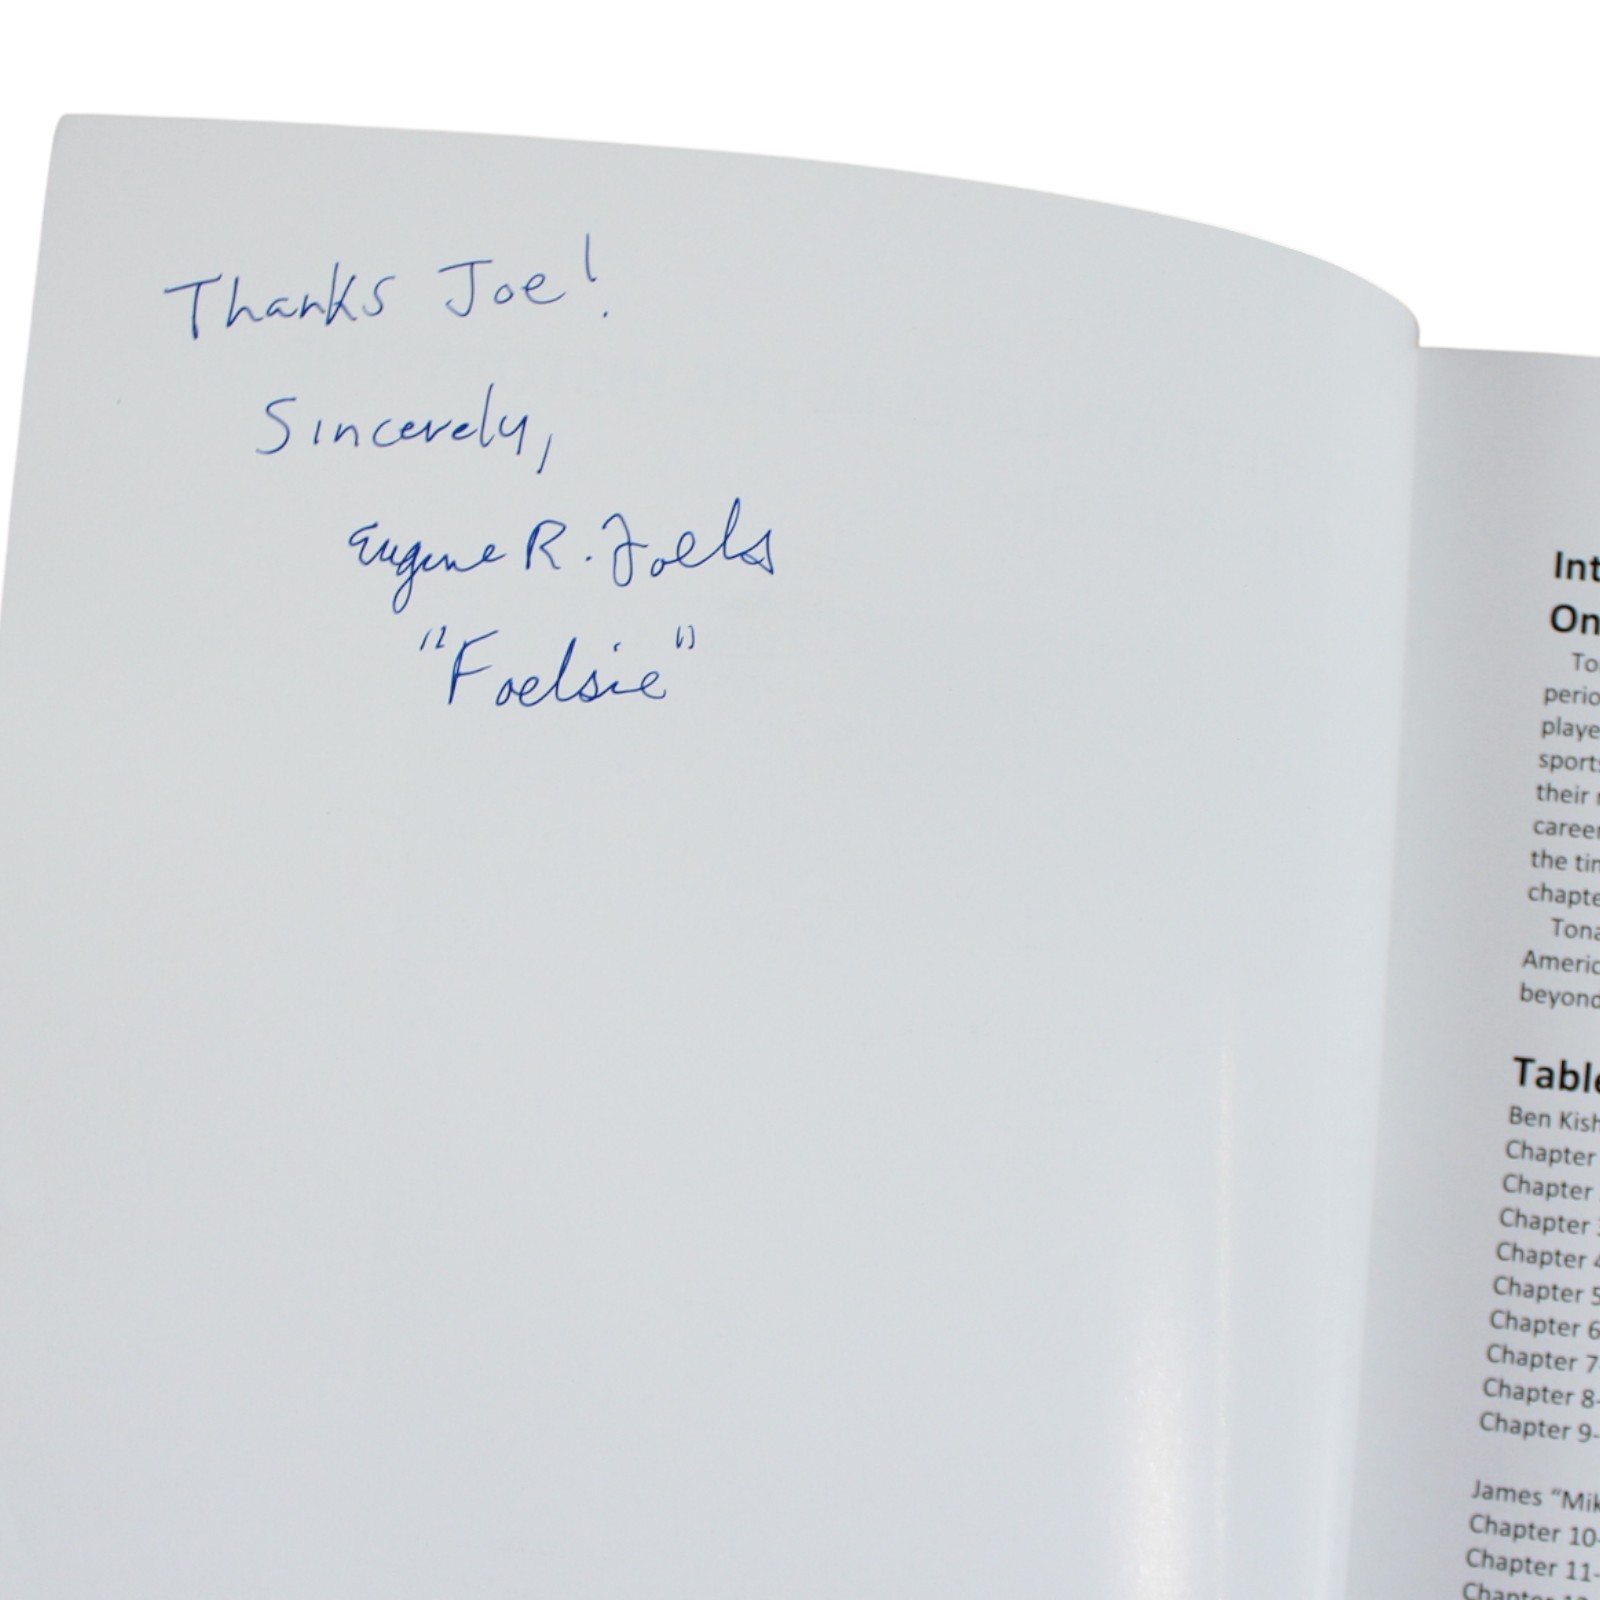 Thanks Joe!
Sincerely,
Eugene R. Foels
"Foelsie"
Int
On
To
perio
playe
sports
their
career
the tim
chapte
Tona
Americ
beyond
Table
Ben Kish
Chapter
Chapter
Chapter 3
Chapter 4
Chapter 5
Chapter 6
Chapter 7
Chapter 8-
Chapter 9-
James "Mik
Chapter 10-
Chapter 11-
Chapter 12-